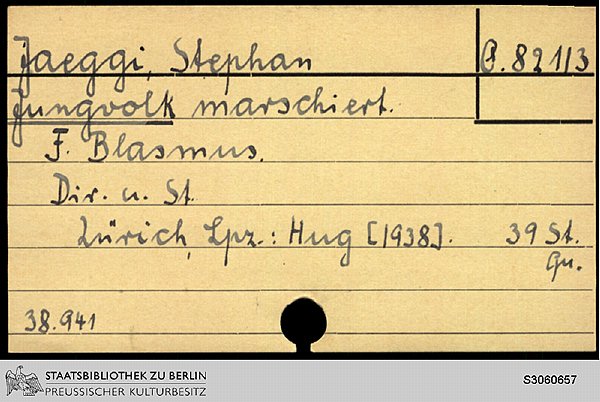 Jaeggi, Stephan
O. 82113
Jungvolk marschiert.
F. Blasmus.
Dir. u. St.
Zürich, Lpz.: Hug [1938]. 39 St.
Qu.
38.941
STAATSBIBLIOTHEK ZU BERLIN
PREUSSISCHER KULTURBESITZ
S3060657